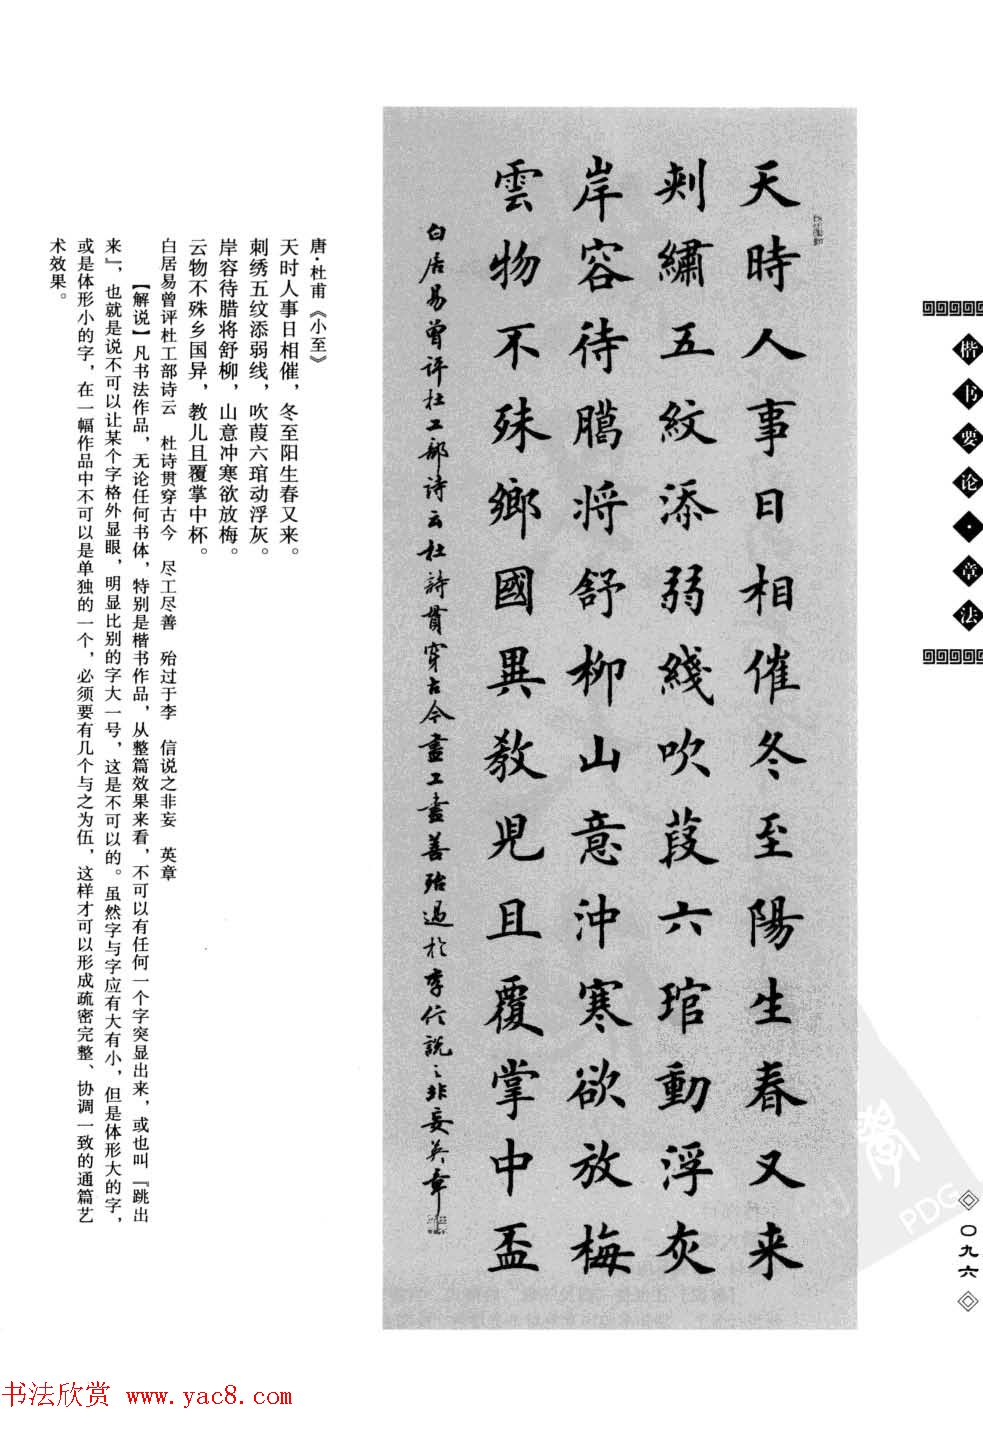 楷书要论·章法
〇九六
天時人事日相催冬至陽生春又来
刺繡五紋添弱綫吹葭六琯動浮灰
岸容待臈将舒柳山意沖寒欲放梅
雲物不殊鄉國異教児且覆掌中盃
白居易曾评杜工部诗云杜詩貫穿古今盡工盡善殆過於李信説之非妄英章
唐·杜甫《小至》
天时人事日相催，冬至阳生春又来。
刺绣五纹添弱线，吹葭六琯动浮灰。
岸容待腊将舒柳，山意冲寒欲放梅。
云物不殊乡国异，教儿且覆掌中杯。
白居易曾评杜工部诗云 杜诗贯穿古今 尽工尽善 殆过于李 信说之非妄 英章
【解说】凡书法作品，无论任何书体，特别是楷书作品，从整篇效果来看，不可以有任何一个字突显出来，或也叫『跳出
来』，也就是说不可以让某个字格外显眼，明显比别的字大一号，这是不可以的。虽然字与字应有大有小，但是体形大的字，
或是体形小的字，在一幅作品中不可以是单独的一个，必须要有几个与之为伍，这样才可以形成疏密完整、协调一致的通篇艺
术效果。
PDG
书法欣赏 www.yac8.com